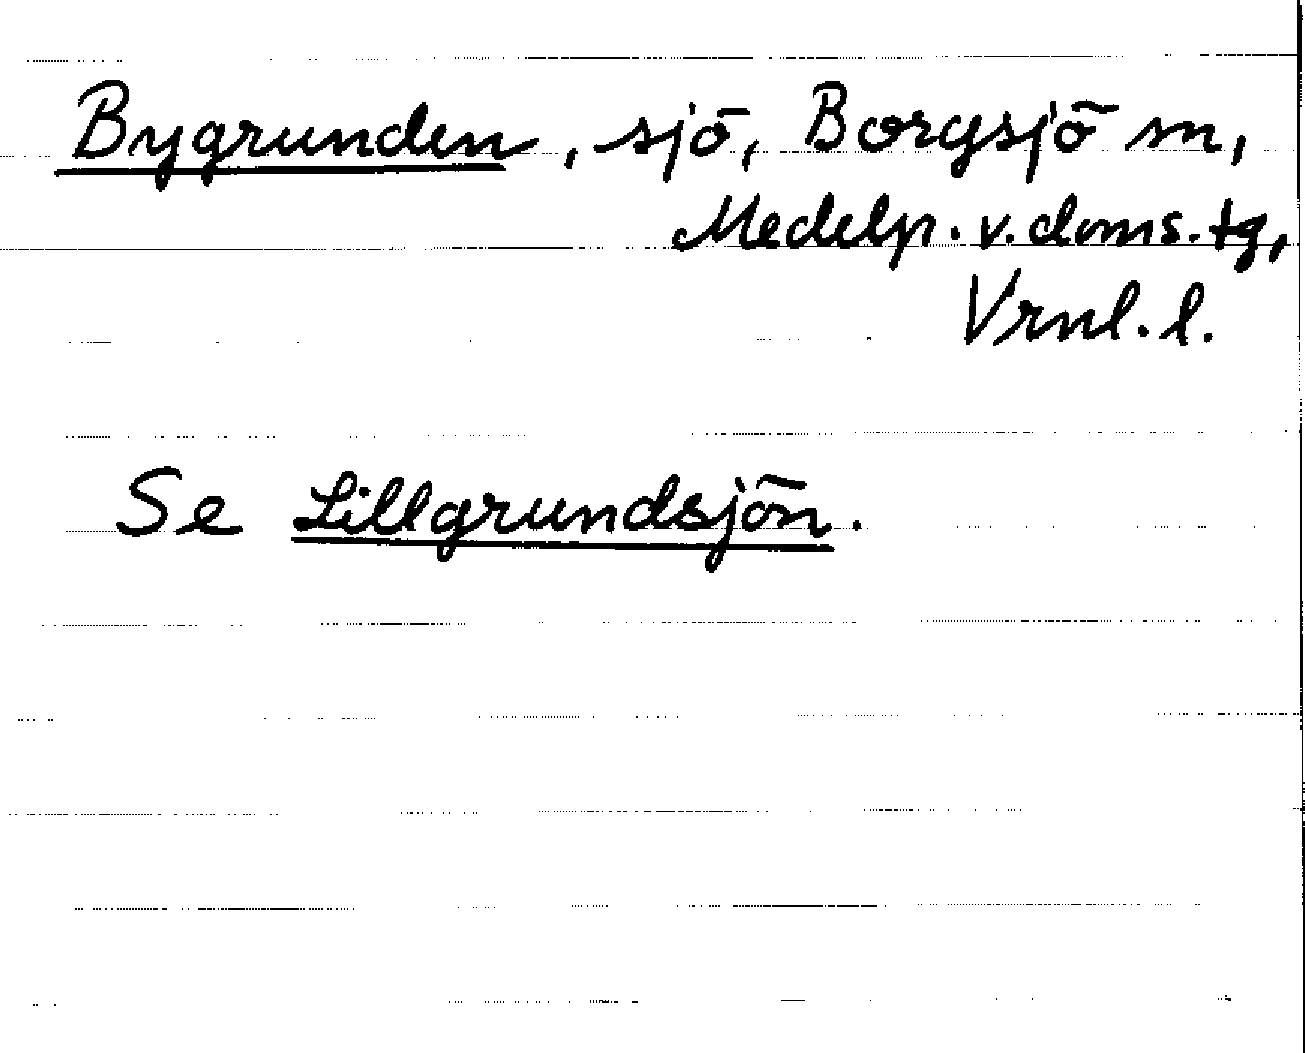 Bygrunden, sjö, Borgsjö sn,
Medelp. v. doms. tg,
Vrnl. l.
Se Lillgrundsjön.